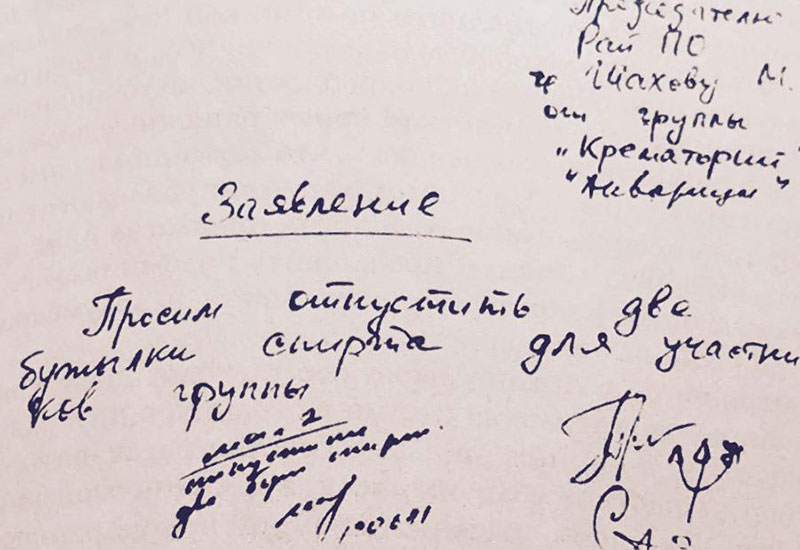 Председателю
Рай ПО
Шахову М.
от группы
„Крематорий"
"Аквариум"
Заявление
Просим отпустить две
бутылки спирта для участни
ков группы
маг. 2
отпустить
две бут. спирт.